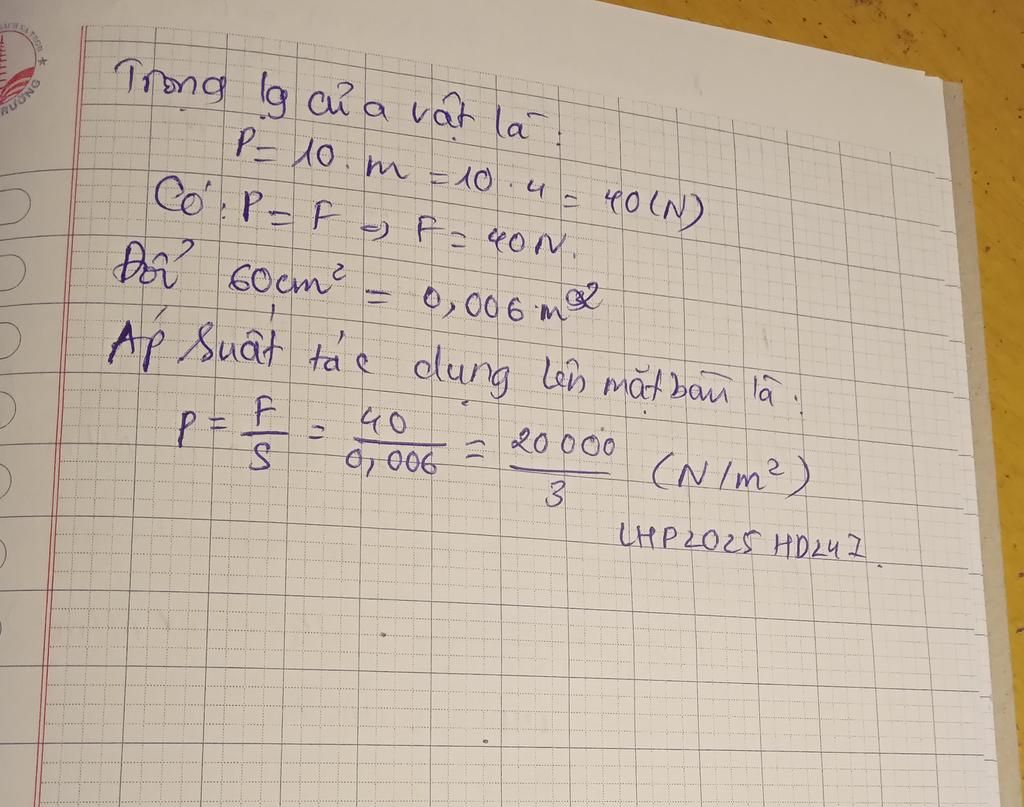 Trọng lg của vật là:
P = 10 . m = 10 . 4 = 40 (N)
Có: P = F => F = 40N.
Đổi 60cm² = 0,006 m²
Áp suất tác dụng lên mặt bàn là:
P = F/S = 40/0,006 = 20 000/3 (N/m²)
LHP2025 HD247.